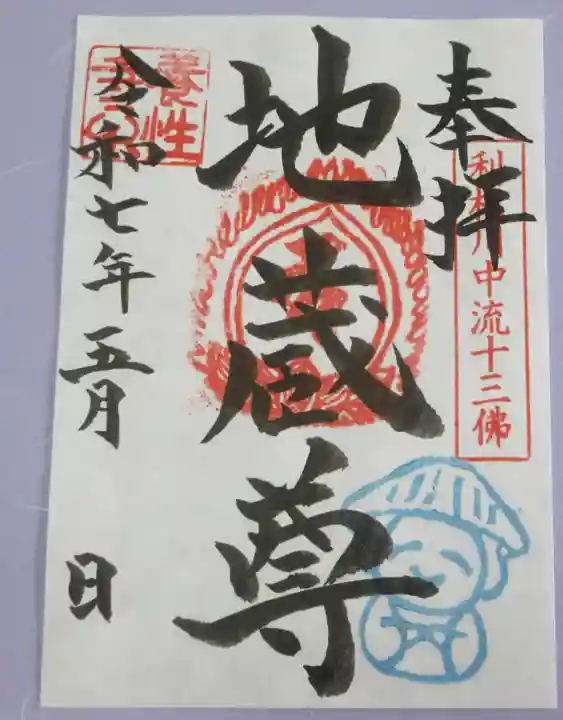 奉拝
利根川中流十三佛
地蔵尊
令和七年五月
日